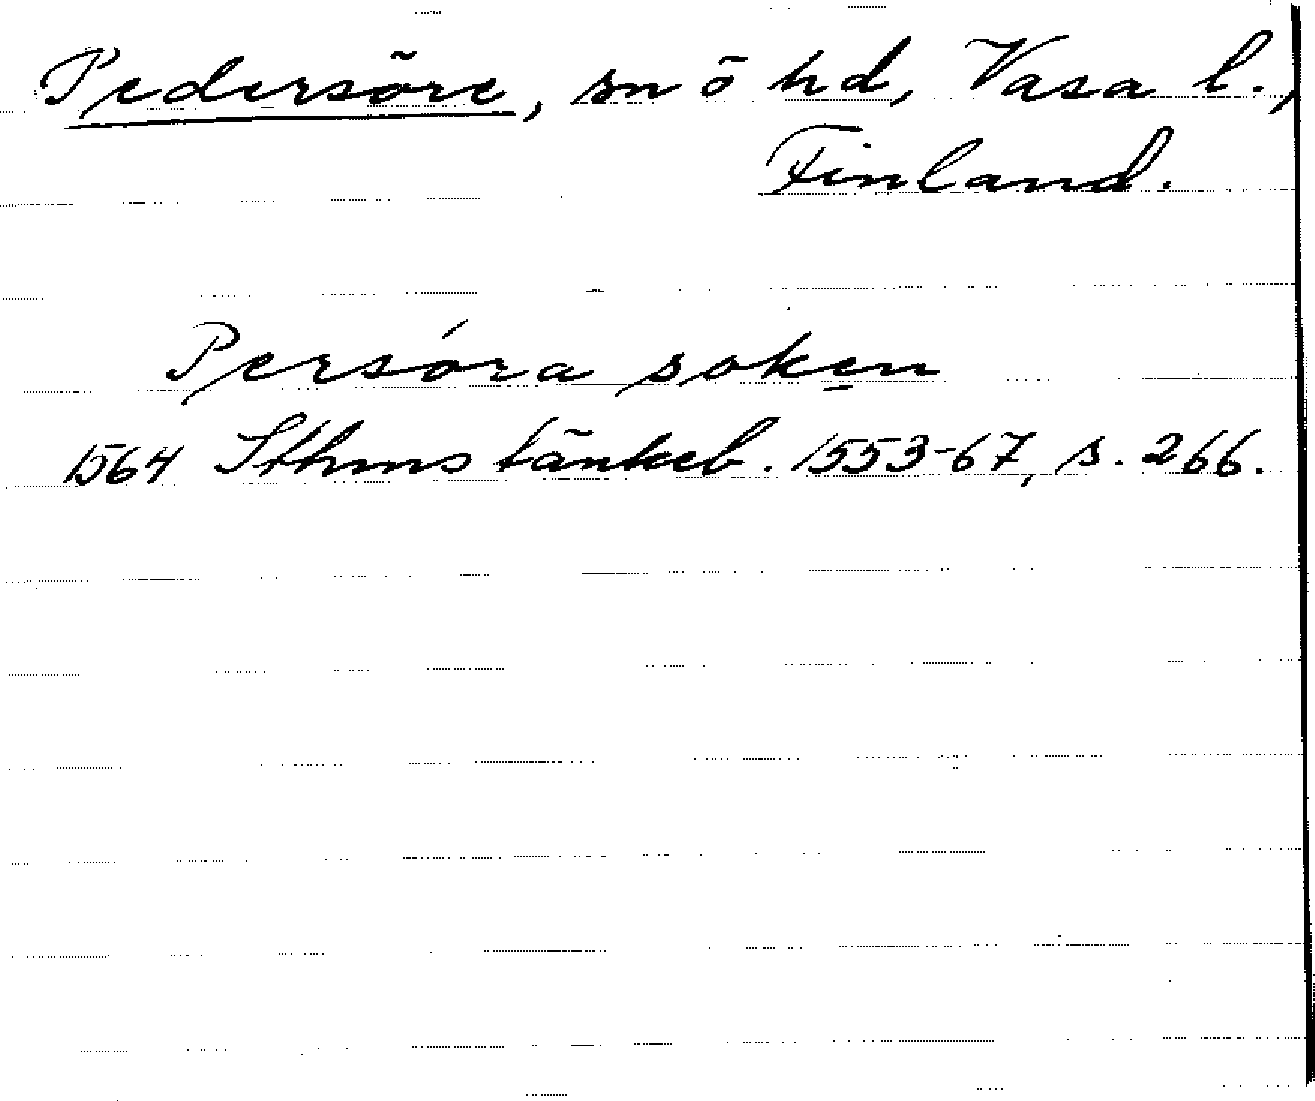 Pedersöre, sn ö hd, Vasa l.,
Finland.
Persóra soken
1564 Sthms tänkeb. 1553-67, s. 266.